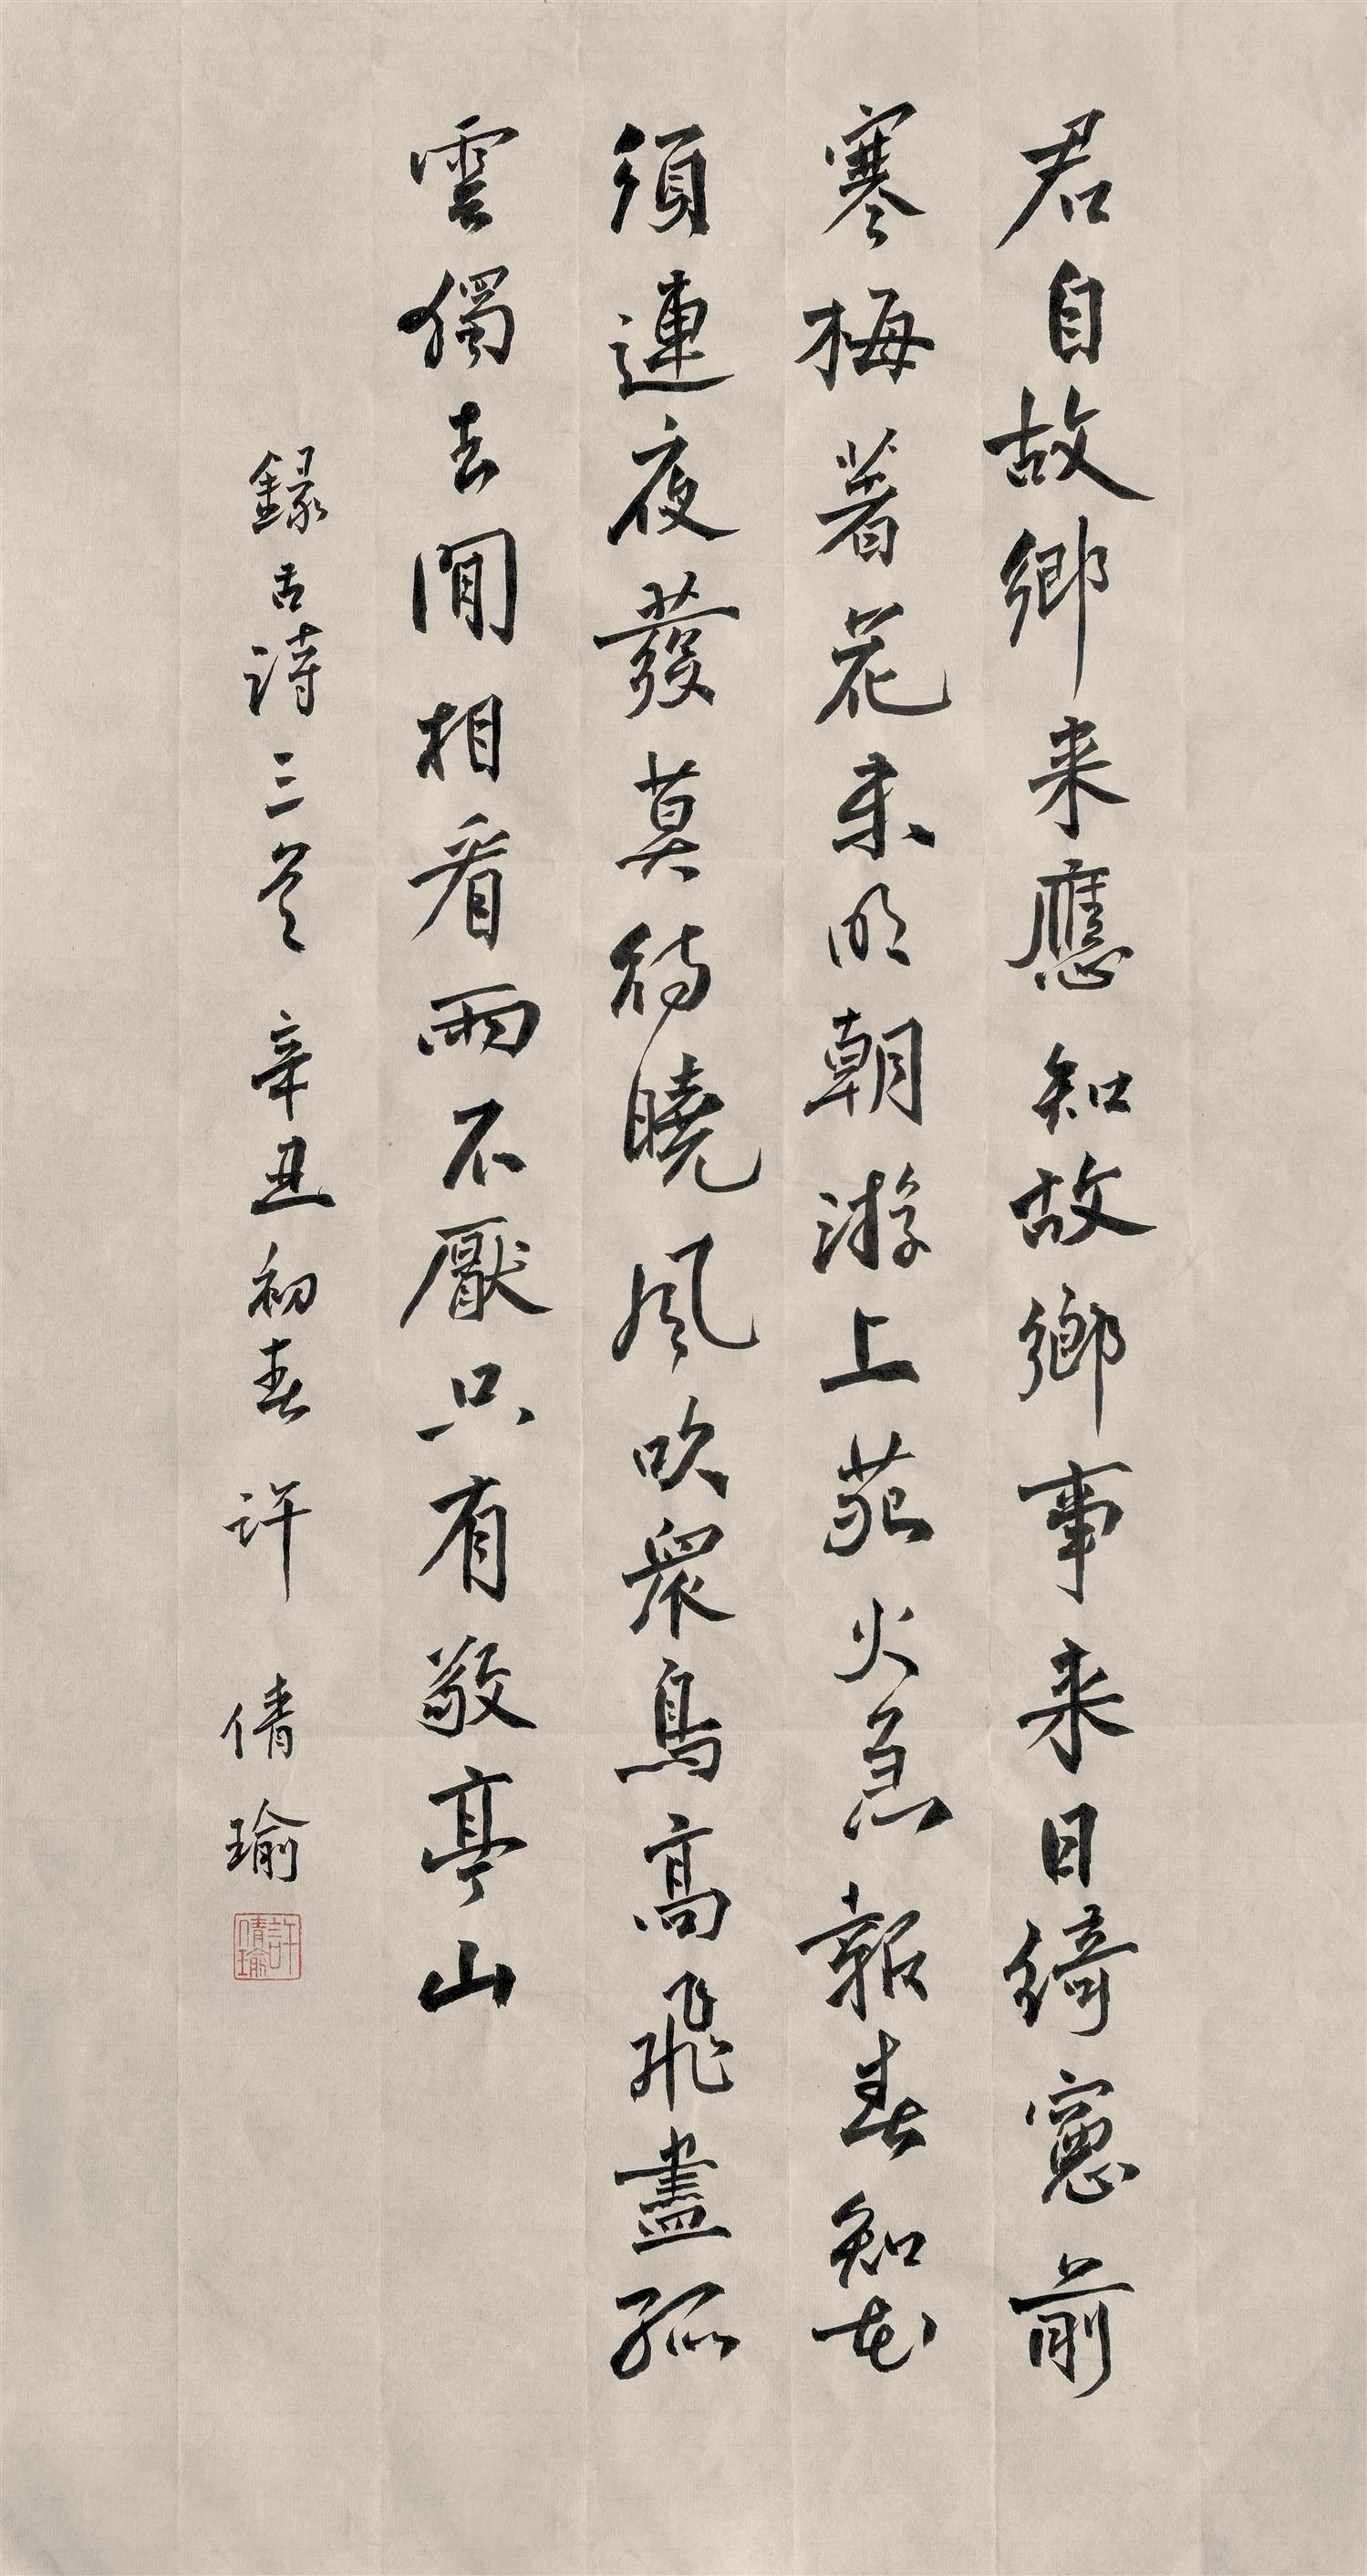 君自故鄉来應知故鄉事来日綺窻前
寒梅著花未明朝游上苑火急報春知花
須連夜發莫待曉風吹衆鳥高飛盡孤
雲獨去閒相看兩不厭只有敬亭山
録古詩三首 辛丑初春 许倩瑜
許倩瑜